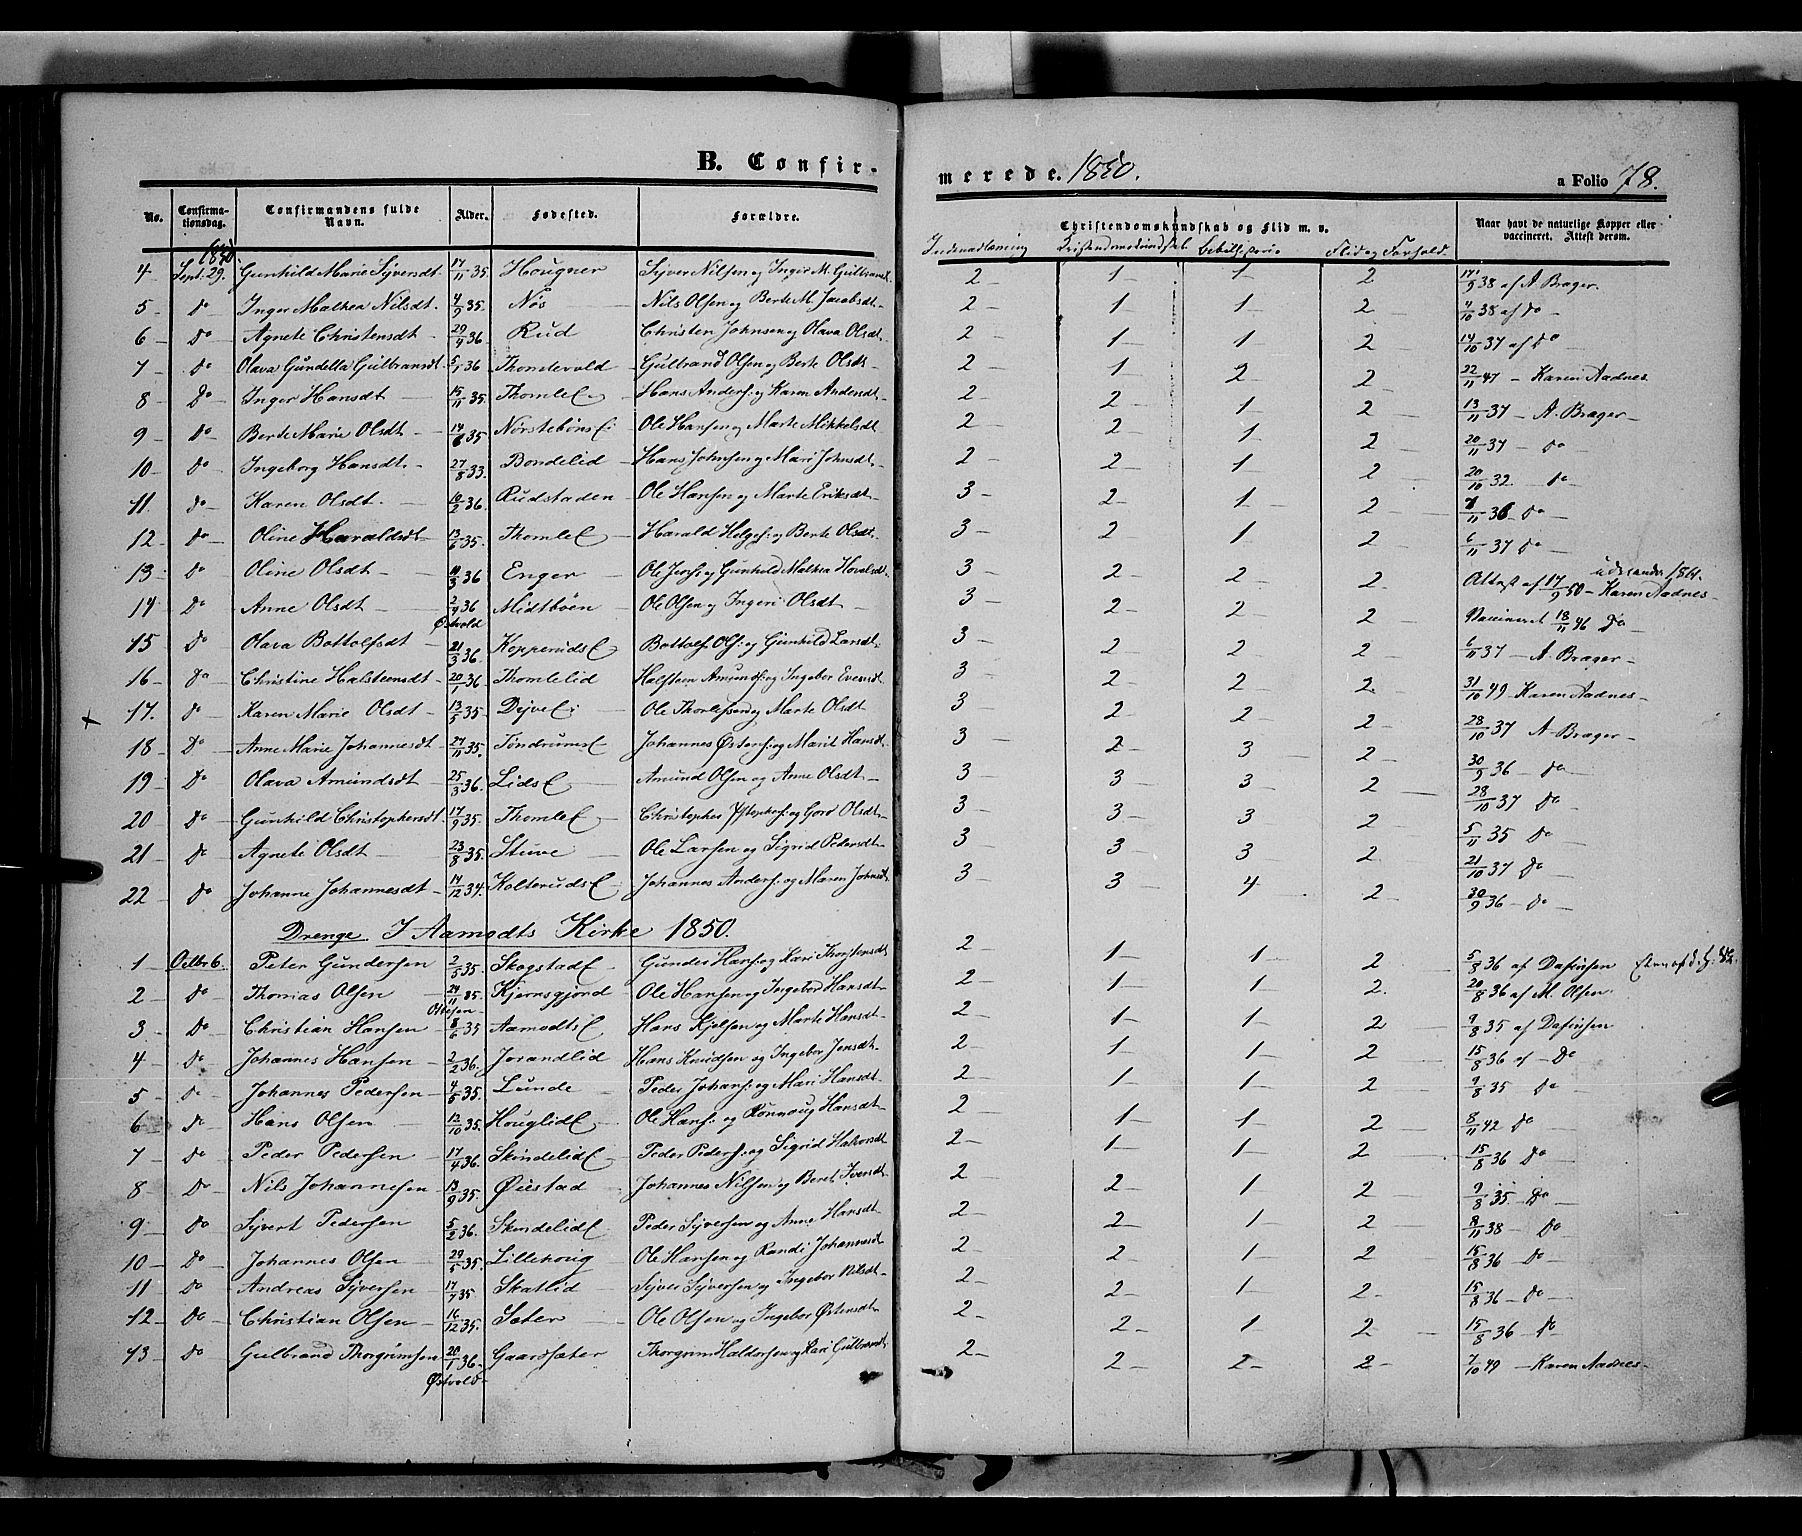 B. Confir-
merede. 1850.
a Folio 78.
No. Confirma-tionsdag. Confirmandens fulde Navn. Alder. Fødested. Forældre. Christendomskundskab og Flid m. v. Naar havt de naturlige Kopper eller vaccineret. Attest derom.
Indenadlæsning Kristendomskundskab Flid og Forhold
1850
4 Sept. 29. Gunhild Marie Syversdt 17/11 35. Hougner Syver Nilsen og Inger M. Gulbransdt 2 1 1 2 17/9 38 af A. Brager.
5 Do Inger Mathea Nilsdt. 4/9 35. Nøs Nils Olsen og Berte M. Jacobsdt 2 1 1 2 4/10 38 af do
6 Do Agnete Christensdt 29/4 36 Rud Christen Johnsen og Olava Olsdt. 2 1 1 2 14/10 37 af Do
7 Do Olava Gundella Gulbransdt 5/1 36 Thontevold Gulbrand Olsen og Berte Olsdt 2 1 2 2 22/11 47 Karen Aadnes
8 Do Inger Hansdt 15/11 35. Thomle E. Hans Anders. og Karen Andersdt 2 2 1 2 13/11 37 A. Brager
9 Do Berte Marie Olsdt 14/6 35 Nørstebøns E. Ole Hansen og Marte Mikkelsdt 2 2 1 2 20/11 37 do
10 Do Ingeborg Hansdt. 27/8 33. Bondelid Hans Johnsen og Mari Johnsdt. 2 2 1 2 20/10 32. do
11. do Karen Olsdt. 10/2 36. Rudstaden Ole Hansen og Marte Eriksdt 3 2 1 2 7/11 36 Do
12 Do Oline Haraldsdt 13/6 35. Thomle E Harald Helges. og Berte Olsdt. 3 2 1 2 6/11 37 Do
13 Do Oline Olsdt 11/3 36 Enger Ole Jens. og Gunhild Mathea Hovelsdt 3 2 2 2 Attest af 17/9 50 Karen Aadnes
14 Do Anne Olsdt 2/4 36 Midtbøen Ole Olsen og Ingeri Olsdt 3 2 2 2 Vaccineret 18/11 46 Do
Østvold
15 Do Olava Bottolfsdt 21/3 36. Kopperuds E Bottolf Ols. og Gunhild Larsdt. 3 2 2 2 6/11 37 A. Brager
16 Do Christine Halsteensdt 20/1 36 Thomlelid Halsteen Amunds. og Ingebor Evensdt 3 2 2 2. 31/10 49 Karen Aadnes
17. do Karen Marie Olsdt 13/5 35. Dejve E: Ole Thorles og Marte Olsdt 3 2 2 2 28/10 37 A. Brager
18 Do Anne Marie Johannesdt 27/11 35. Tøndrums E Johannes Østens. og Marit Hansdt. 3 2 3 2 30/9 36 do
19 Do Olava Amundsdt 25/3 36. Lids E Amund Olsen og Anne Olsdt 3 3 3 2 28/10 37 Do
20 Do Gunhild Christophersdt. 17/9 35. Thomle E Christopher og Goro Olsdt 3 3 3 2 5/11 35 Do
21 Do Agnete Olsdt 23/8 35. Stuve Ole Larsen og Sigrid Pedersdt 3 3 3 2. 21/10 37 Do
22 Do Johanne Johannesdt 14/12 34. Kolteruds E Johannes Anders. og Maren Johnsdt 3 3 4 2 30/9 36 Do
Drenge. I Aamodts Kirke 1850.
1 Octbr 6. Peter Gundersen 2/5 35. Skogstad E Gunder Hans. og Kari Thostensdt 2 1 1 2 5/8 36 af Dafinsen
2 Do Thomas Olsen 24/11 35. Kjernsgjord Ole Hansen og Ingebor Hansdt 2 1 1 2. 20/8 36 af M. Olsen
3 Do Christian Hansen 8/6 35 Aamodts E Hans Kjelsen og Marte Hansdt. 2 1 1 2 9/8 35 af Dafinsen
4 Do Johannes Hansen 2/2 36. Jorandlid Hans Knudsen og Ingebor Jensdt. 2 1 1 2 15/8 36 af Do
5 Do Johannes Pedersen 4/5 35. Lunde Peder Johans. og Mari Hansdt 2 1 1 2 9/8 35 Do
6 do Hans Olsen 12/10 35. Houglid E Ole Hans. og Rønnoug Hansdt 2 1 1 2 8/11 42 Do
7 Do Peder Pedersen 17/4 36. Skindelid E Peder Peders. og Sigrid Halvorsdt 2 1 1 2 15/8 36 Do
8 Do Nils Johannesen 13/9 35. Øiestad Johannes Nilsen og Beret Iversdt 2 2 1 2 9/8 35 Do
9 Do Syvert Pedersen 5/2 36. Skindelid E Peder Syversen og Anne Hansdt 2 2 1 2 8/11 38 Do
10 Do Johannes Olsen 29/5 35. Lillehoug Ole Hansen og Randi Johannesdt 2 2 1 2 15/8 36 Do
11 Do Andreas Syversen 17/7 35 Skatlid Syver Syversen og Ingebor Nilsdt 2 2 1 2. 15/8 36 do
12 Do Christian Olsen 16/12 35. Sæter Ole Olsen og Ingebor Østensdt 2 2 1 2 15/8 36 Do
13 Do Gulbrand Thorgrimsen 20/1 36 Gaardsæter Thorgrim Haldorsen og Kari Gulbransdt 2 2 2 2 7/10 49 Karen Aadnes
Østvold